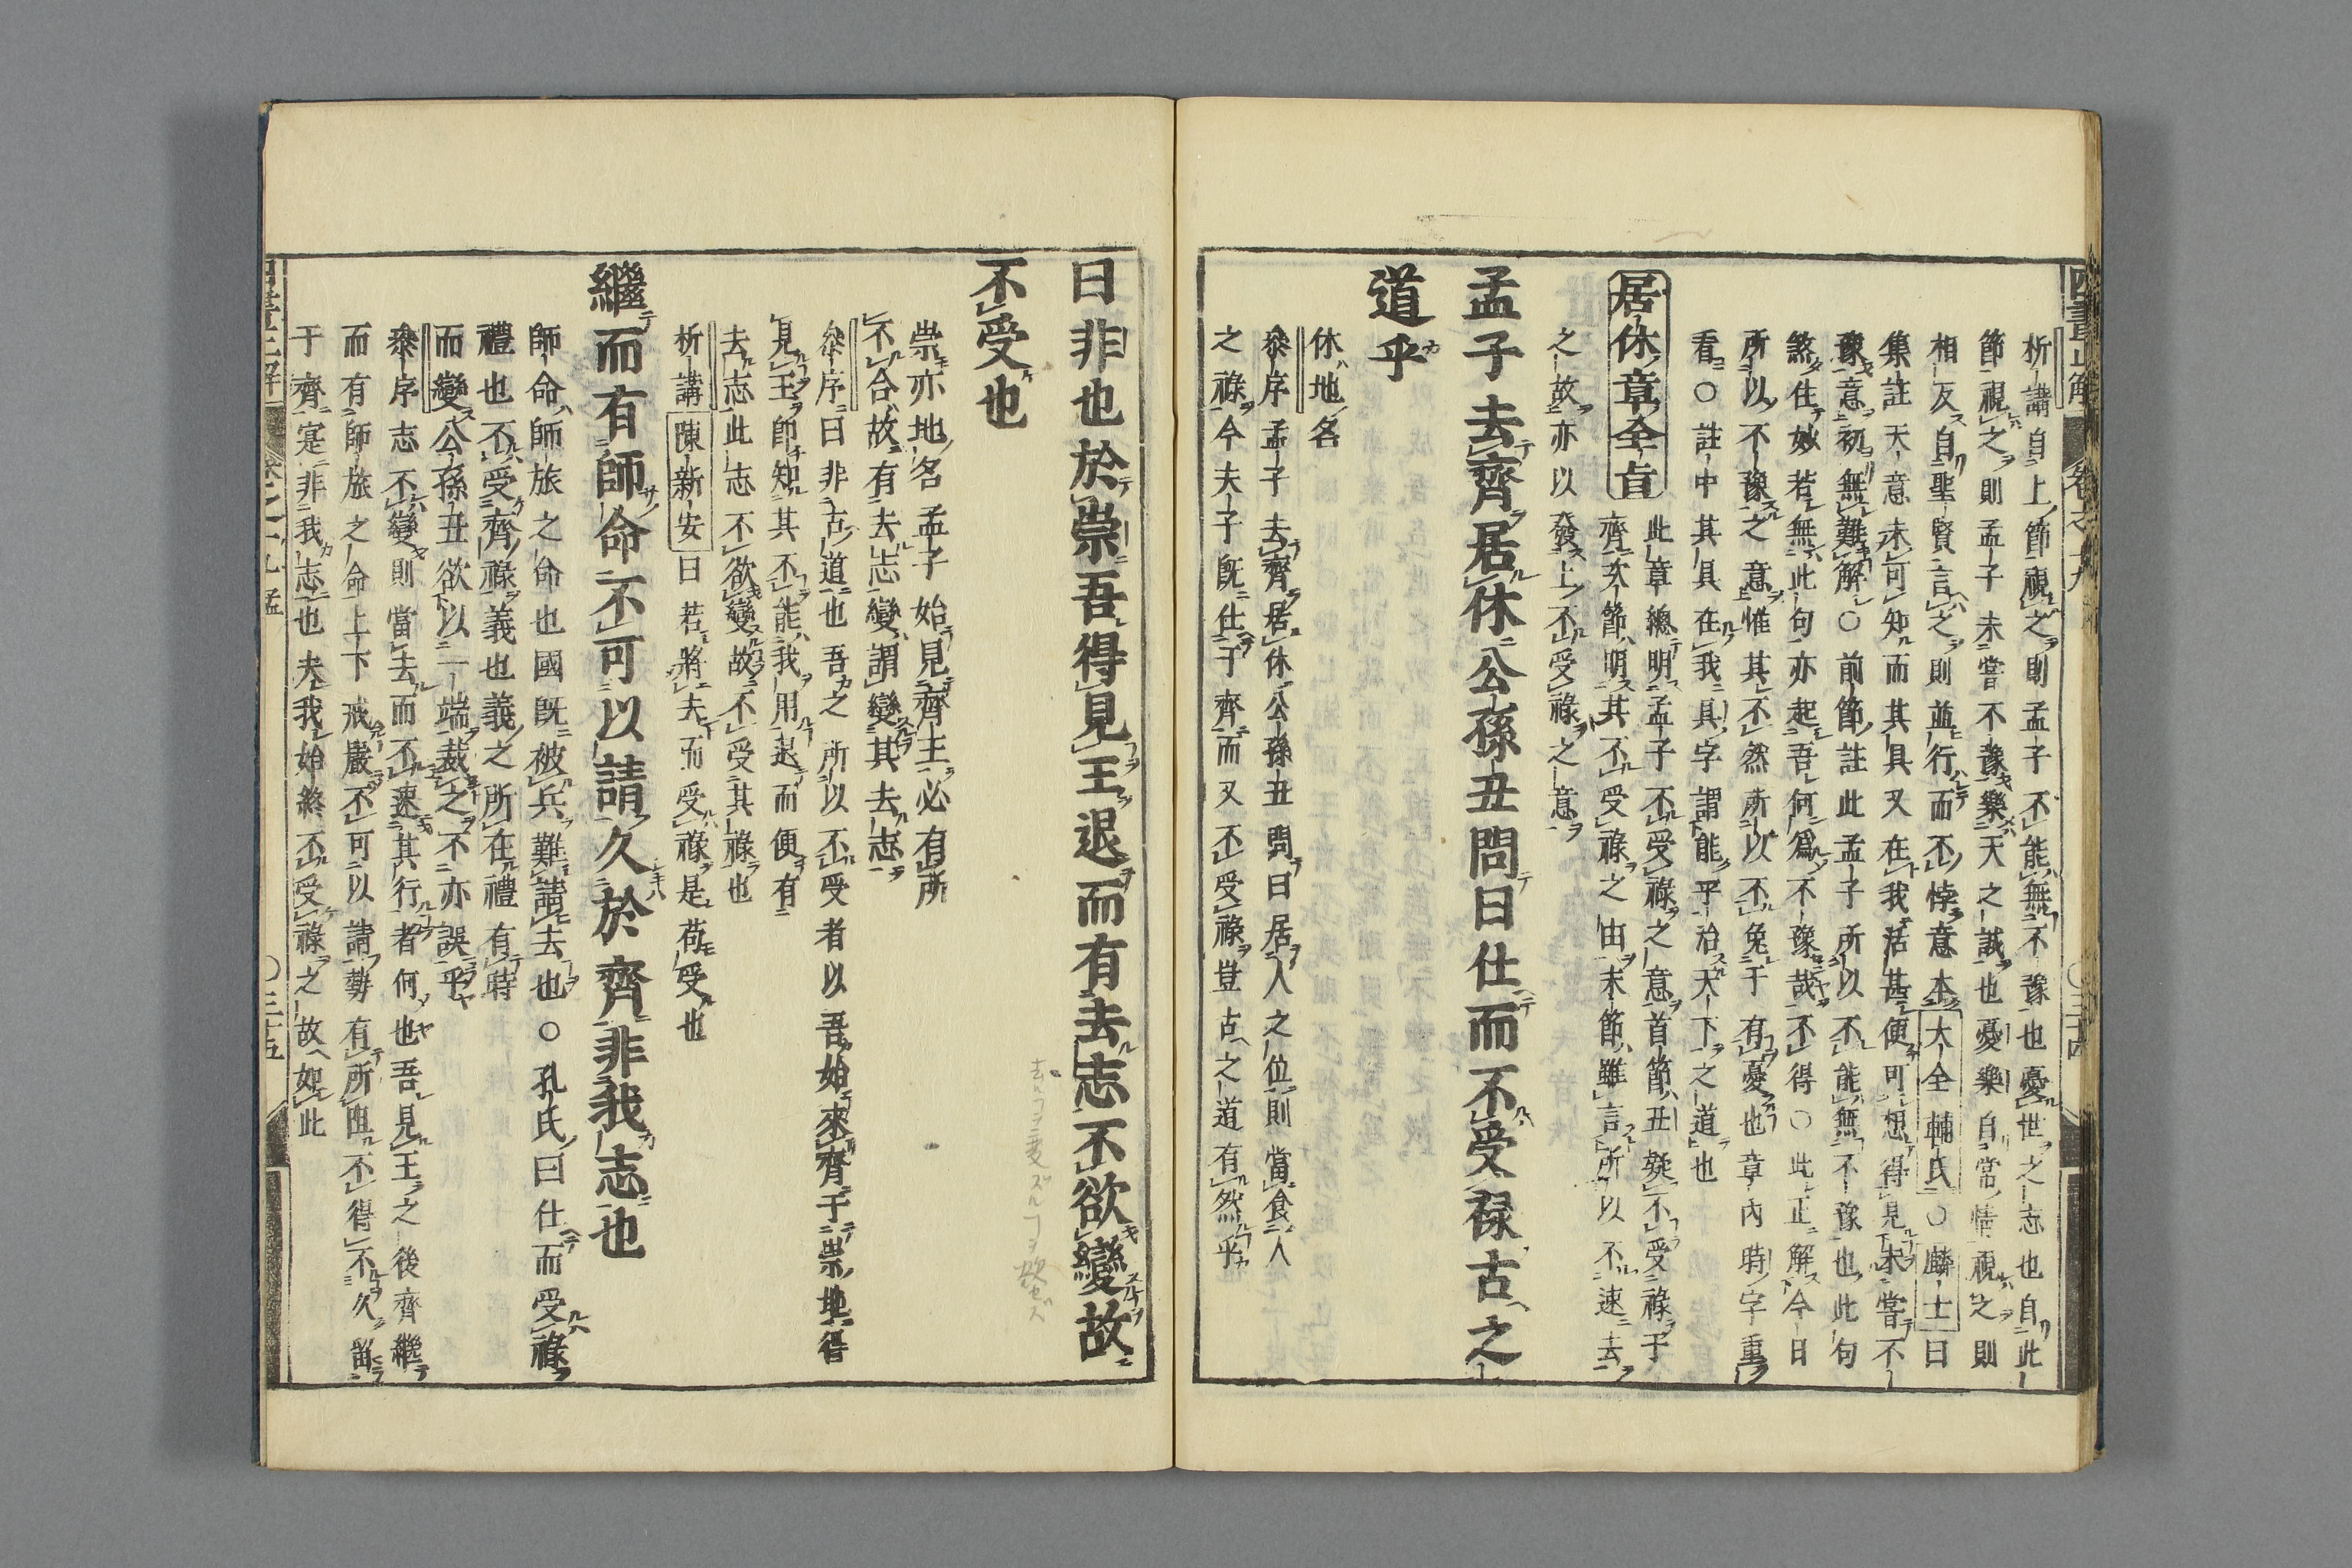 析講自上節視之則孟子不能無不豫也憂世之志也自此
節視之則孟子未嘗不豫樂天之誠也憂樂自常情視之則
相反自聖賢言之則並行而不悖意本大全輔氏○麟士曰
集註天意未可知而其具又在我活甚便可想得見未嘗不
豫意初無難解○前節註此孟子所以不能無不豫也此句
煞住妙若無此句亦起吾何爲不豫哉不得○此正解今日
所以不豫之意惟其不然所以不免于有憂也章內時字重
看○註中其具在我具字謂能平治天下之道也
居休章全旨
此章總明孟子不受祿之意首節丑疑不受祿于
齊次節明其不受祿之由末節雖言所以不速去
之故亦以發上不受祿之意
孟子去齊居休公孫丑問曰仕而不受祿古之
道乎
休地名
叅序孟子去齊居休公孫丑問曰居人之位則當食人
之祿今夫子旣仕于齊而又不受祿豈古之道有然乎
四書正解
卷之十九
○三十四
曰非也於崇吾得見王退而有去志不欲變故
不受也
去ルコヲ変ズルコヲ欲セズ
崇亦地名孟子始見齊王必有所
不合故有去志變謂變其去志
叅序曰非古道也吾之所以不受者以吾始來齊于崇地得
見王卽知其不能我用退而便有
去志此志不欲變故不受其祿也
析講陳新安曰若將去而受祿是苟受也
繼而有師命不可以請久於齊非我志也
師命師旅之命也國旣被兵難請去也○孔氏曰仕而受祿
禮也不受齊祿義也義之所在禮有時
而變公孫丑欲以一端裁之不亦誤乎
叅序志不變則當去而不速其行者何也吾見王之後齊繼
而有師旅之命上下戒嚴不可以請勢有所阻不得不久留
于齊寔非我志也夫我始終不受祿之故如此
四書正解
卷之十九孟
○三十五